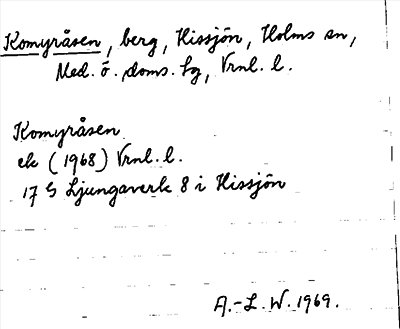 Komyråsen, berg, Hissjön, Holms sn,
Med. ö. doms. hg, Vrnl. l.
Komyråsen
ek (1968) Vrnl. l.
17 G Ljungaverk 8 i Hissjön
A.-L. W. 1969.